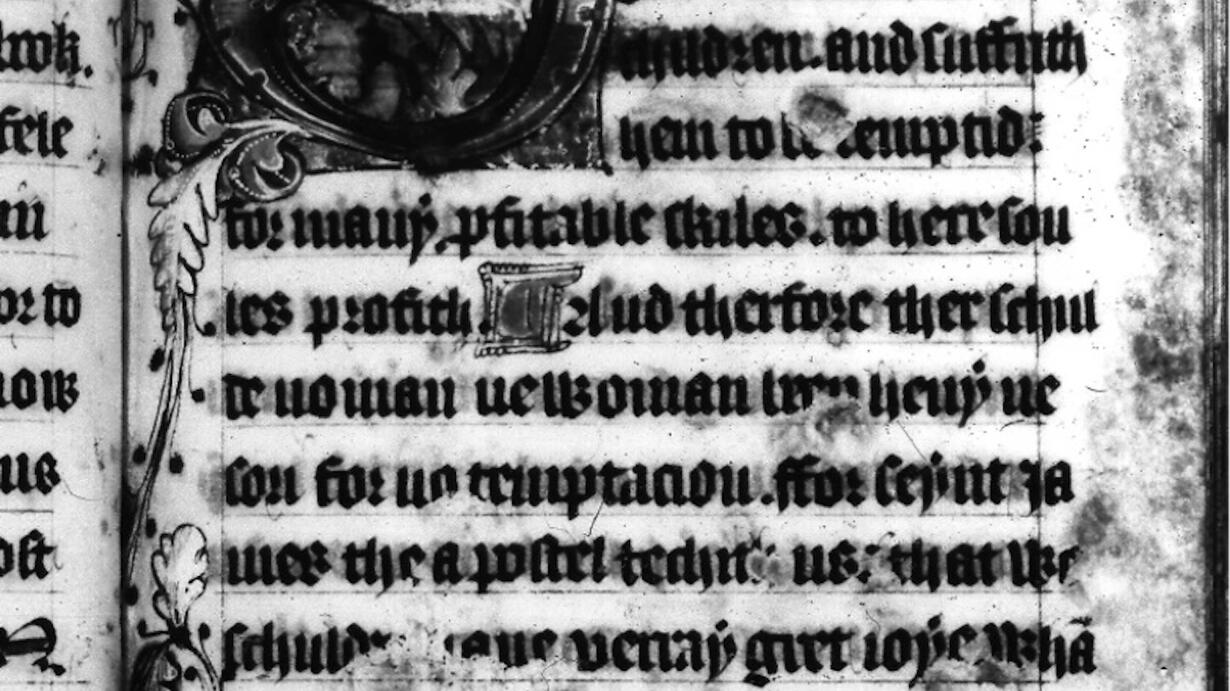 lwk.
fele
or to
now
us
ost
children. and suffrith
hem to be temptid:
for many pfitable skiles. to here sou
les profith. And therfore ther schul
de noman ne woman ben heuy ne
son for no temptacion. ffor seynt Ja
mes the apostel techith us: that we
schulde haue verray gret ioye whā